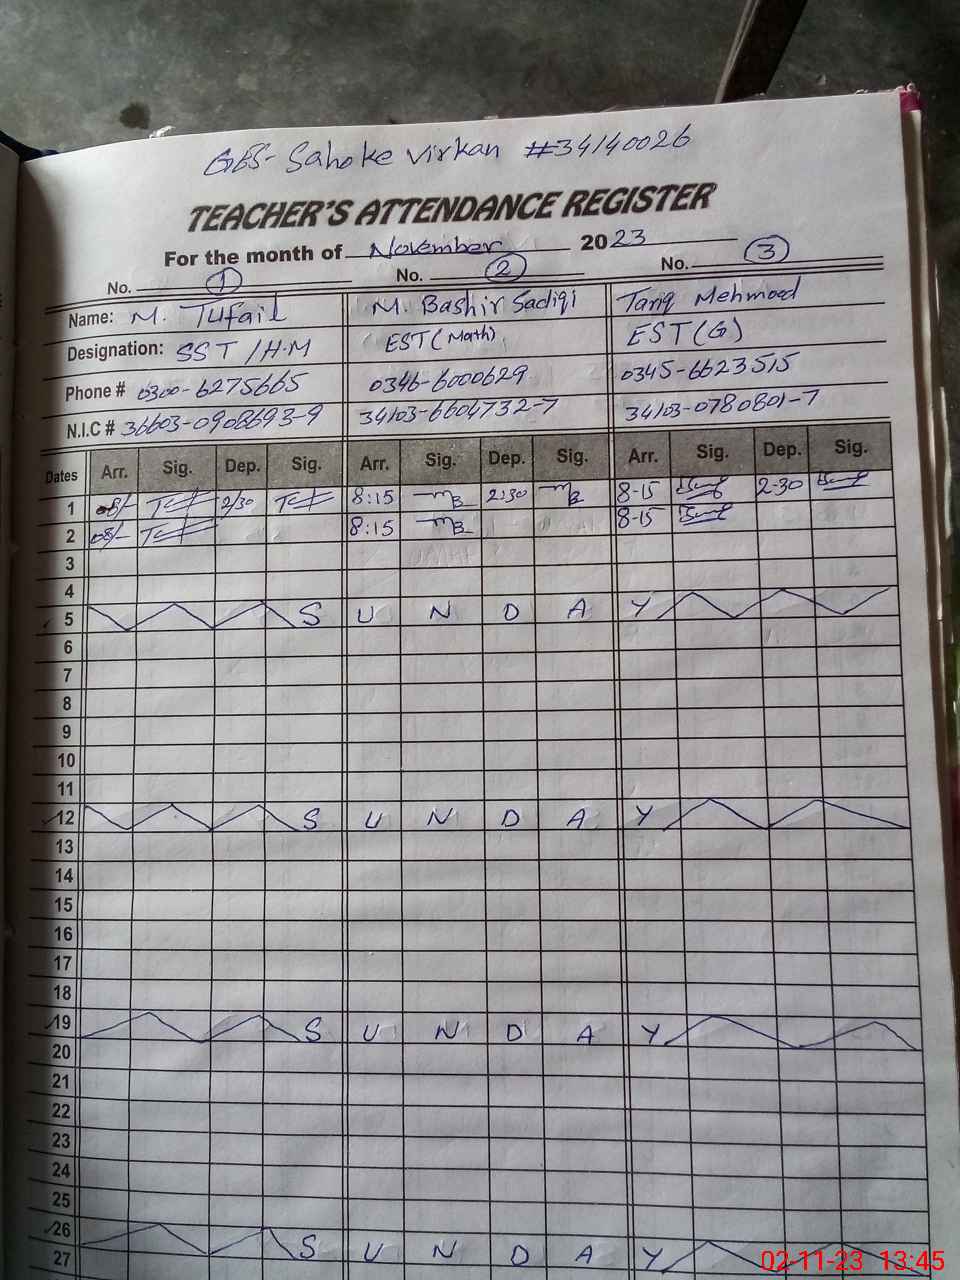 GES- Sahoke Virkan #34140026
TEACHER'S ATTENDANCE REGISTER
For the month of November 2023
No. 1 No. 2 No. 3
Name: M. Tufail M. Bashir Sadiqi Tariq Mehmood
Designation: SST/H.M EST(Math) EST(G)
Phone # 0300-6275665 0346-6000629 0345-6623515
N.I.C # 36603-0908693-9 34103-6604732-7 34103-0780801-7
Dates Arr. Sig. Dep. Sig. Arr. Sig. Dep. Sig. Arr. Sig. Dep. Sig.
1 08/- 2/30 8:15 2:30 8-15 2-30
2 08/- 8:15 8-15
3
4
5 S U N D A Y
6
7
8
9
10
11
12 S U N D A Y
13
14
15
16
17
18
19 S U N D A Y
20
21
22
23
24
25
26 S U N D A Y
27
02-11-23 13:45